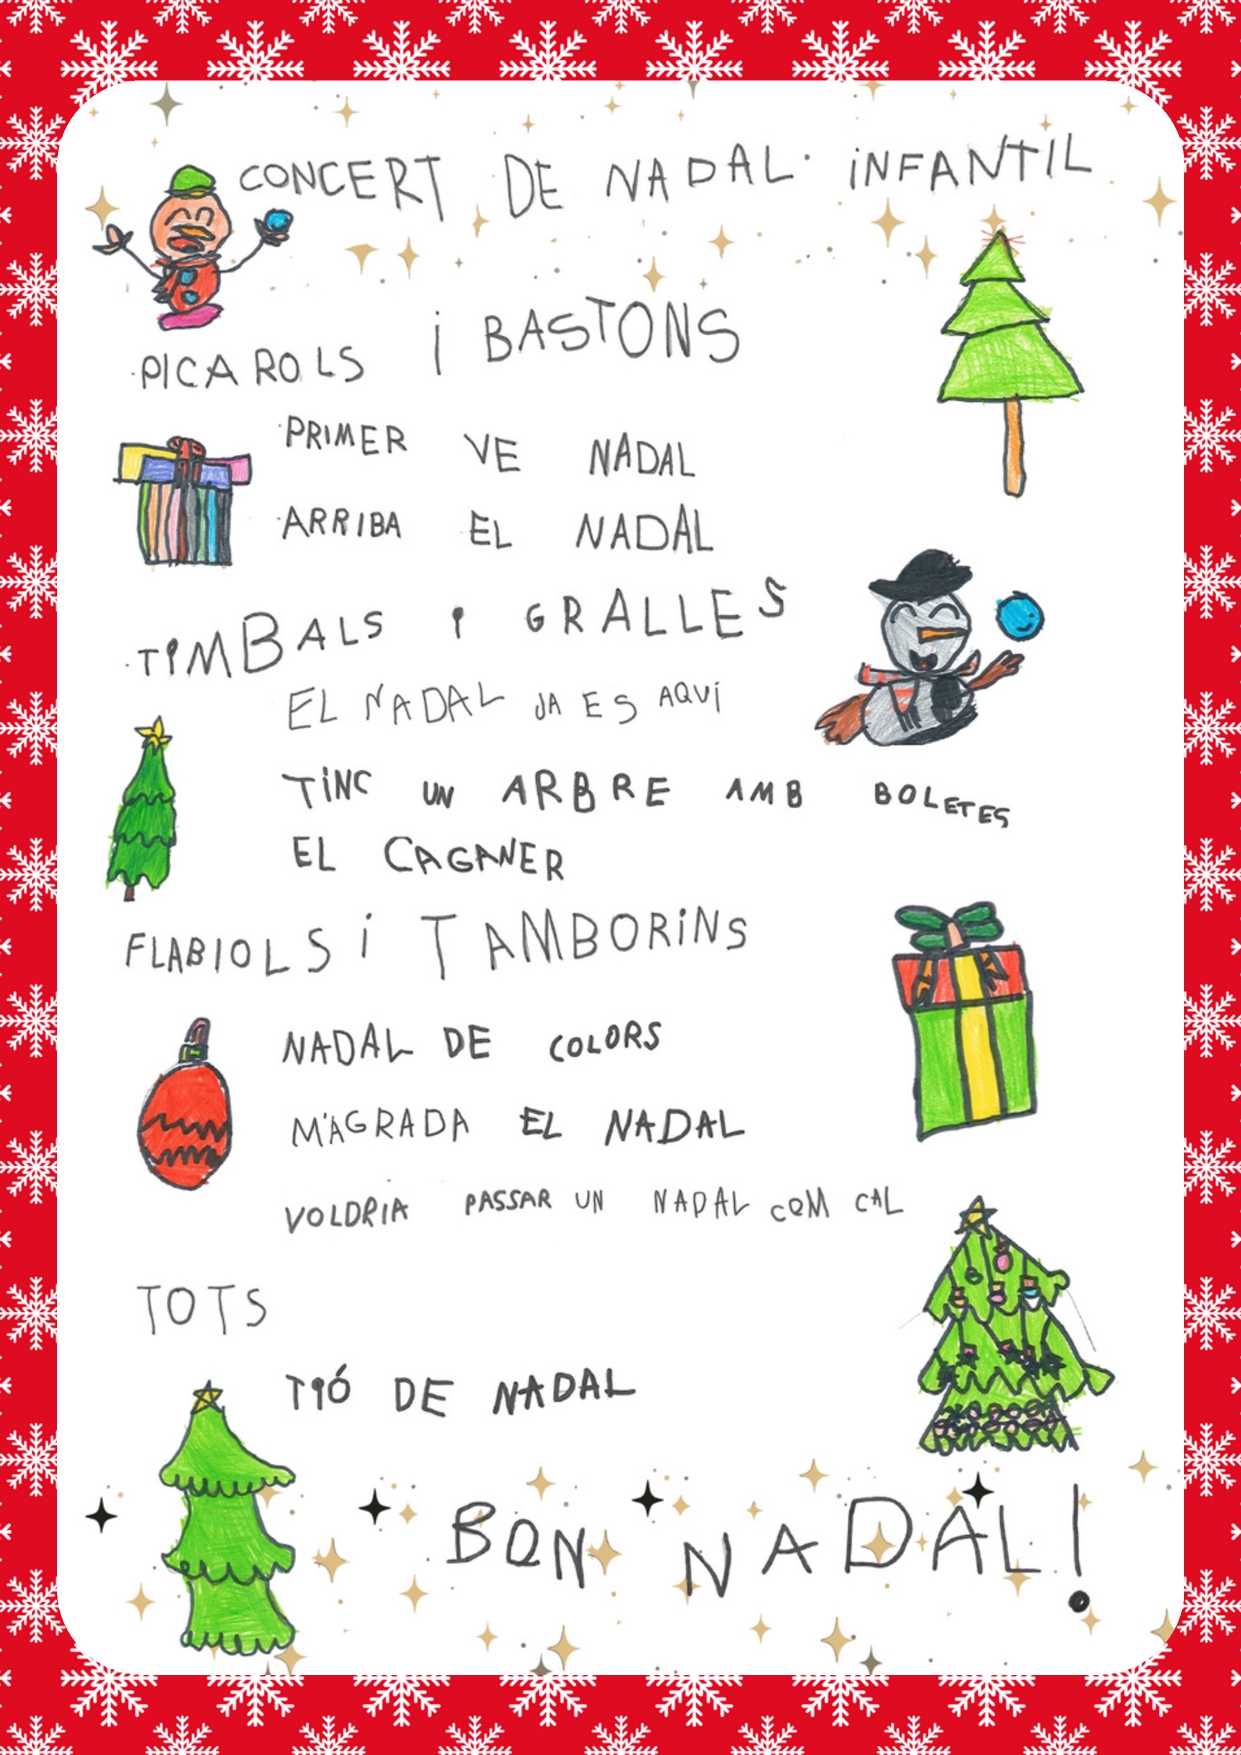 CONCERT DE NADAL INFANTIL
PICAROLS i BASTONS
PRIMER VE NADAL
ARRIBA EL NADAL
TIMBALS I GRALLES
EL NADAL JA ES AQUÍ
TiNC UN ARBRE AMB BOLETES
EL CAGANER
FLABIOLS i TAMBORiNS
NADAL DE COLORS
M'AGRADA EL NADAL
VOLDRIA PASSAR UN NADAL COM CAL
TOTS
TIÓ DE NADAL
BON NADAL!